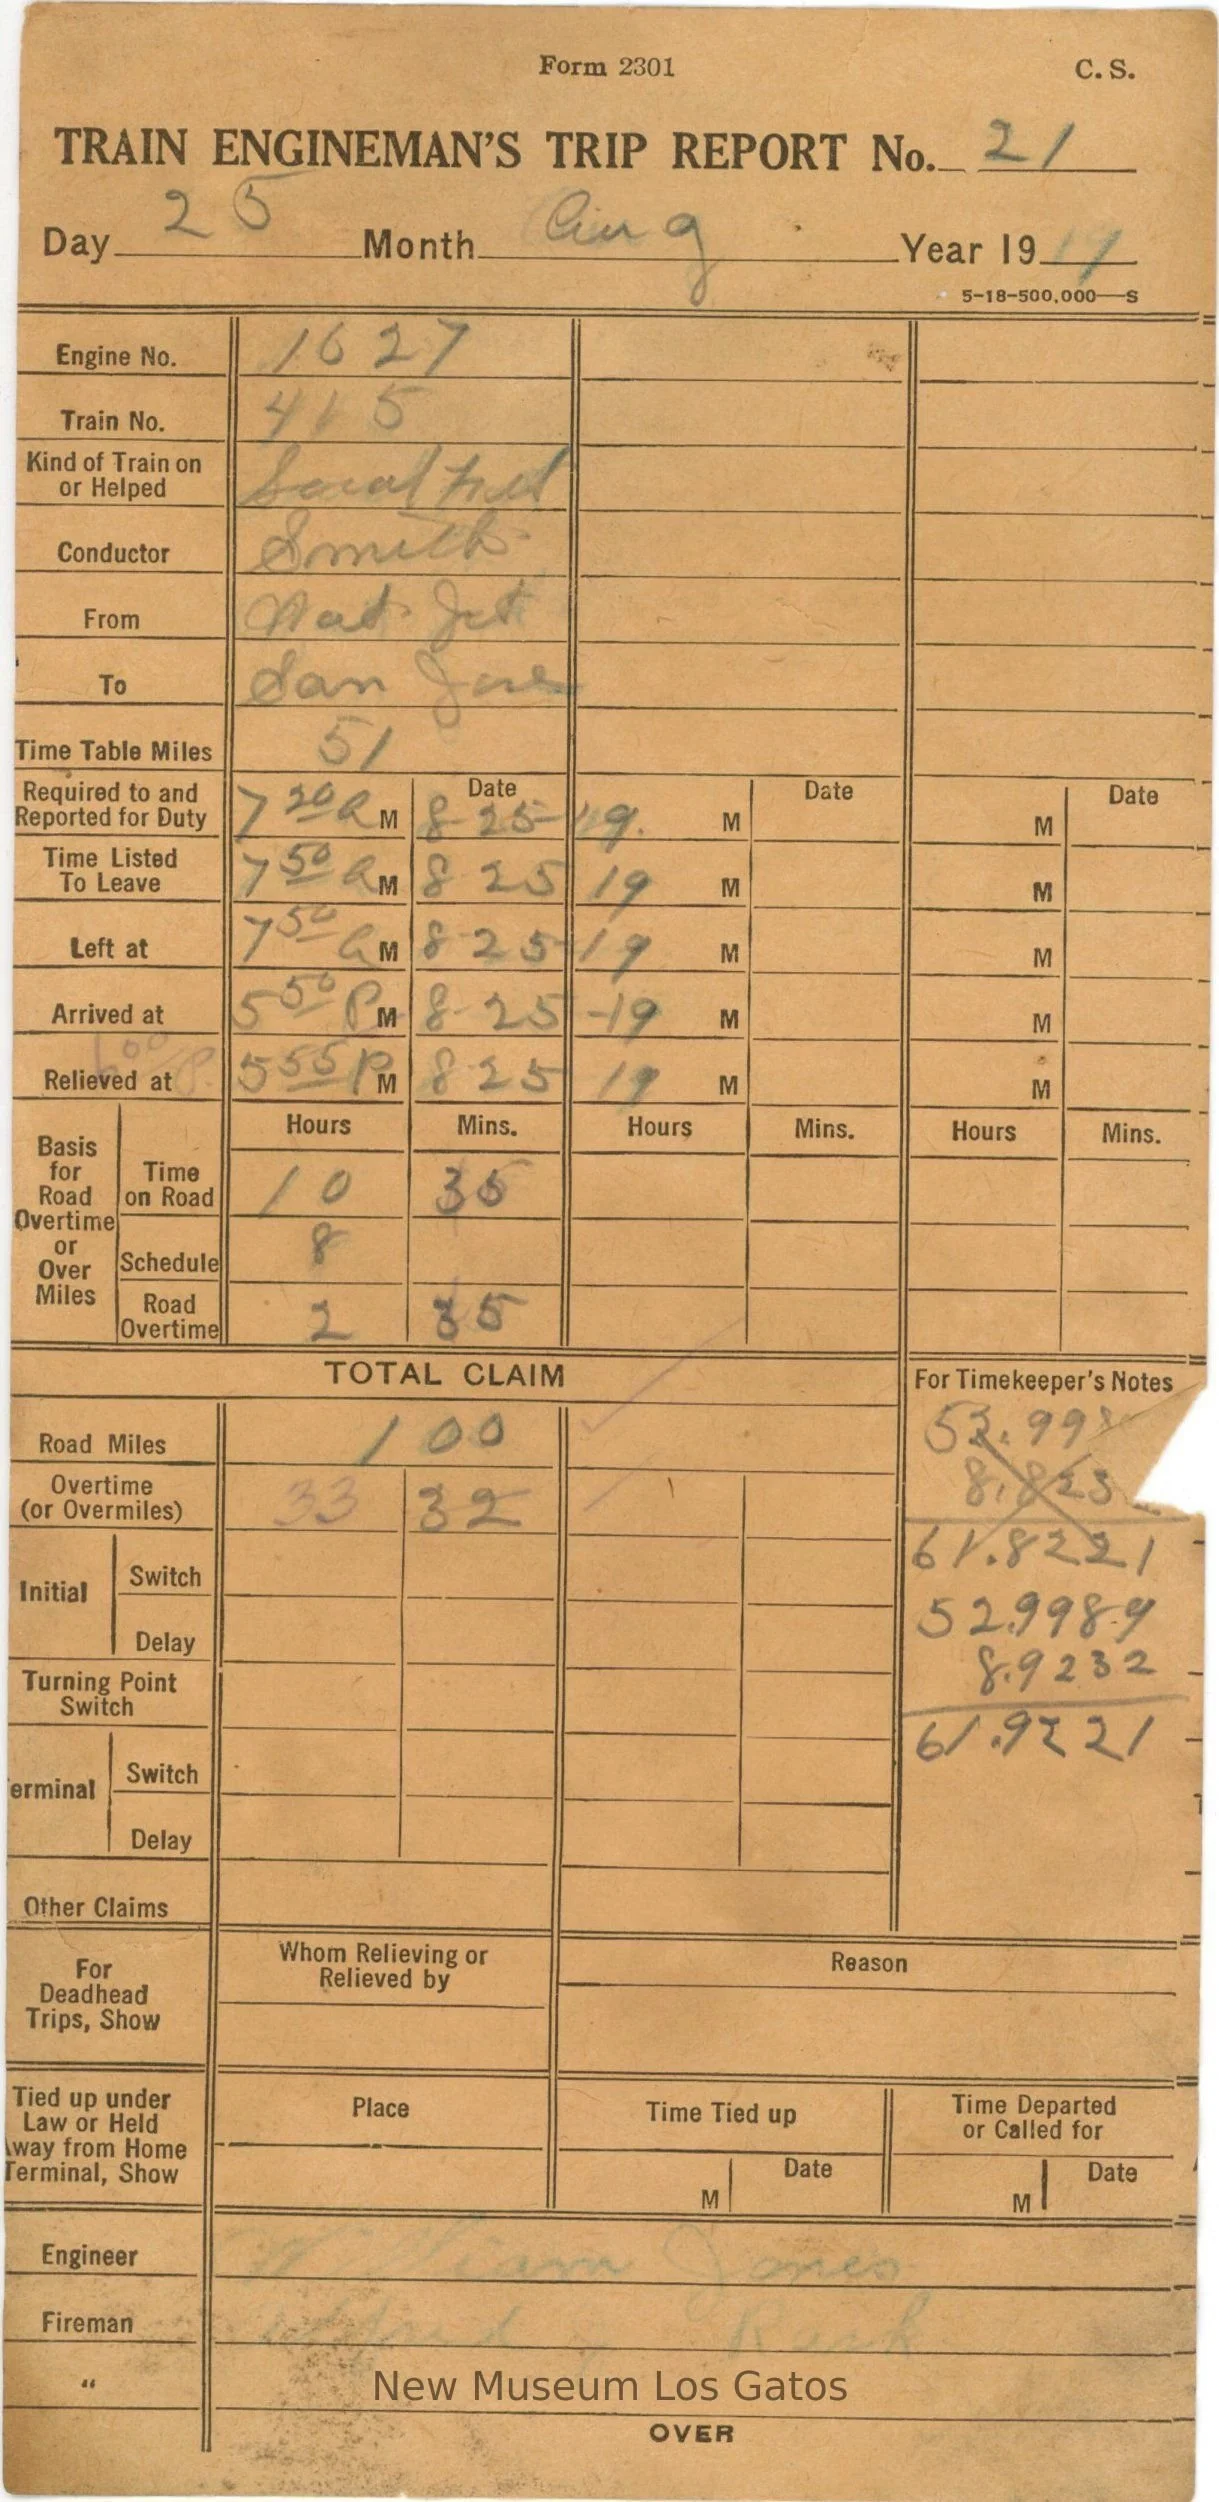 Form 2301 C. S.
TRAIN ENGINEMAN'S TRIP REPORT No. 21
Day 25 Month Aug Year 19 19
5-18-500,000—S
Engine No. 1627
Train No. 415
Kind of Train on or Helped Local Frt
Conductor Smith
From Wat Jct
To San Jose
Time Table Miles 51
Date Date Date
Required to and Reported for Duty 7 20 A M 8-25-19. M M
Time Listed To Leave 7 50 A M 8 25 19 M M
Left at 7 50 A M 8-25-19 M M
Arrived at 5 50 P M 8-25-19 M M
6 00 P.
Relieved at 5 55 P M 8 25 19 M M
Hours Mins. Hours Mins. Hours Mins.
Basis for Road Overtime or Over Miles
Time on Road 10 35
Schedule 8
Road Overtime 2 35
TOTAL CLAIM
For Timekeeper's Notes
Road Miles 100
Overtime (or Overmiles) 33 32
Initial Switch
Delay
Turning Point Switch
erminal Switch
Delay
Other Claims
8.823
61.8221
52.9989
8.9232
61.9221
For Deadhead Trips, Show
Whom Relieving or Relieved by
Reason
Tied up under Law or Held way from Home Terminal, Show
Place
Time Tied up
Time Departed or Called for
M Date M Date
Engineer William Jones
Fireman
"
New Museum Los Gatos
OVER